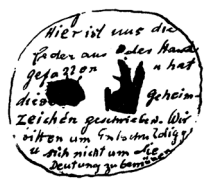 Hier ist uns die
Feder aus der Hand
gefallen u hat
diese geheim-
zeichen geschrieben. Wir
bitten um Entschuldig
u sich nicht um die
Deutung zu bemühen